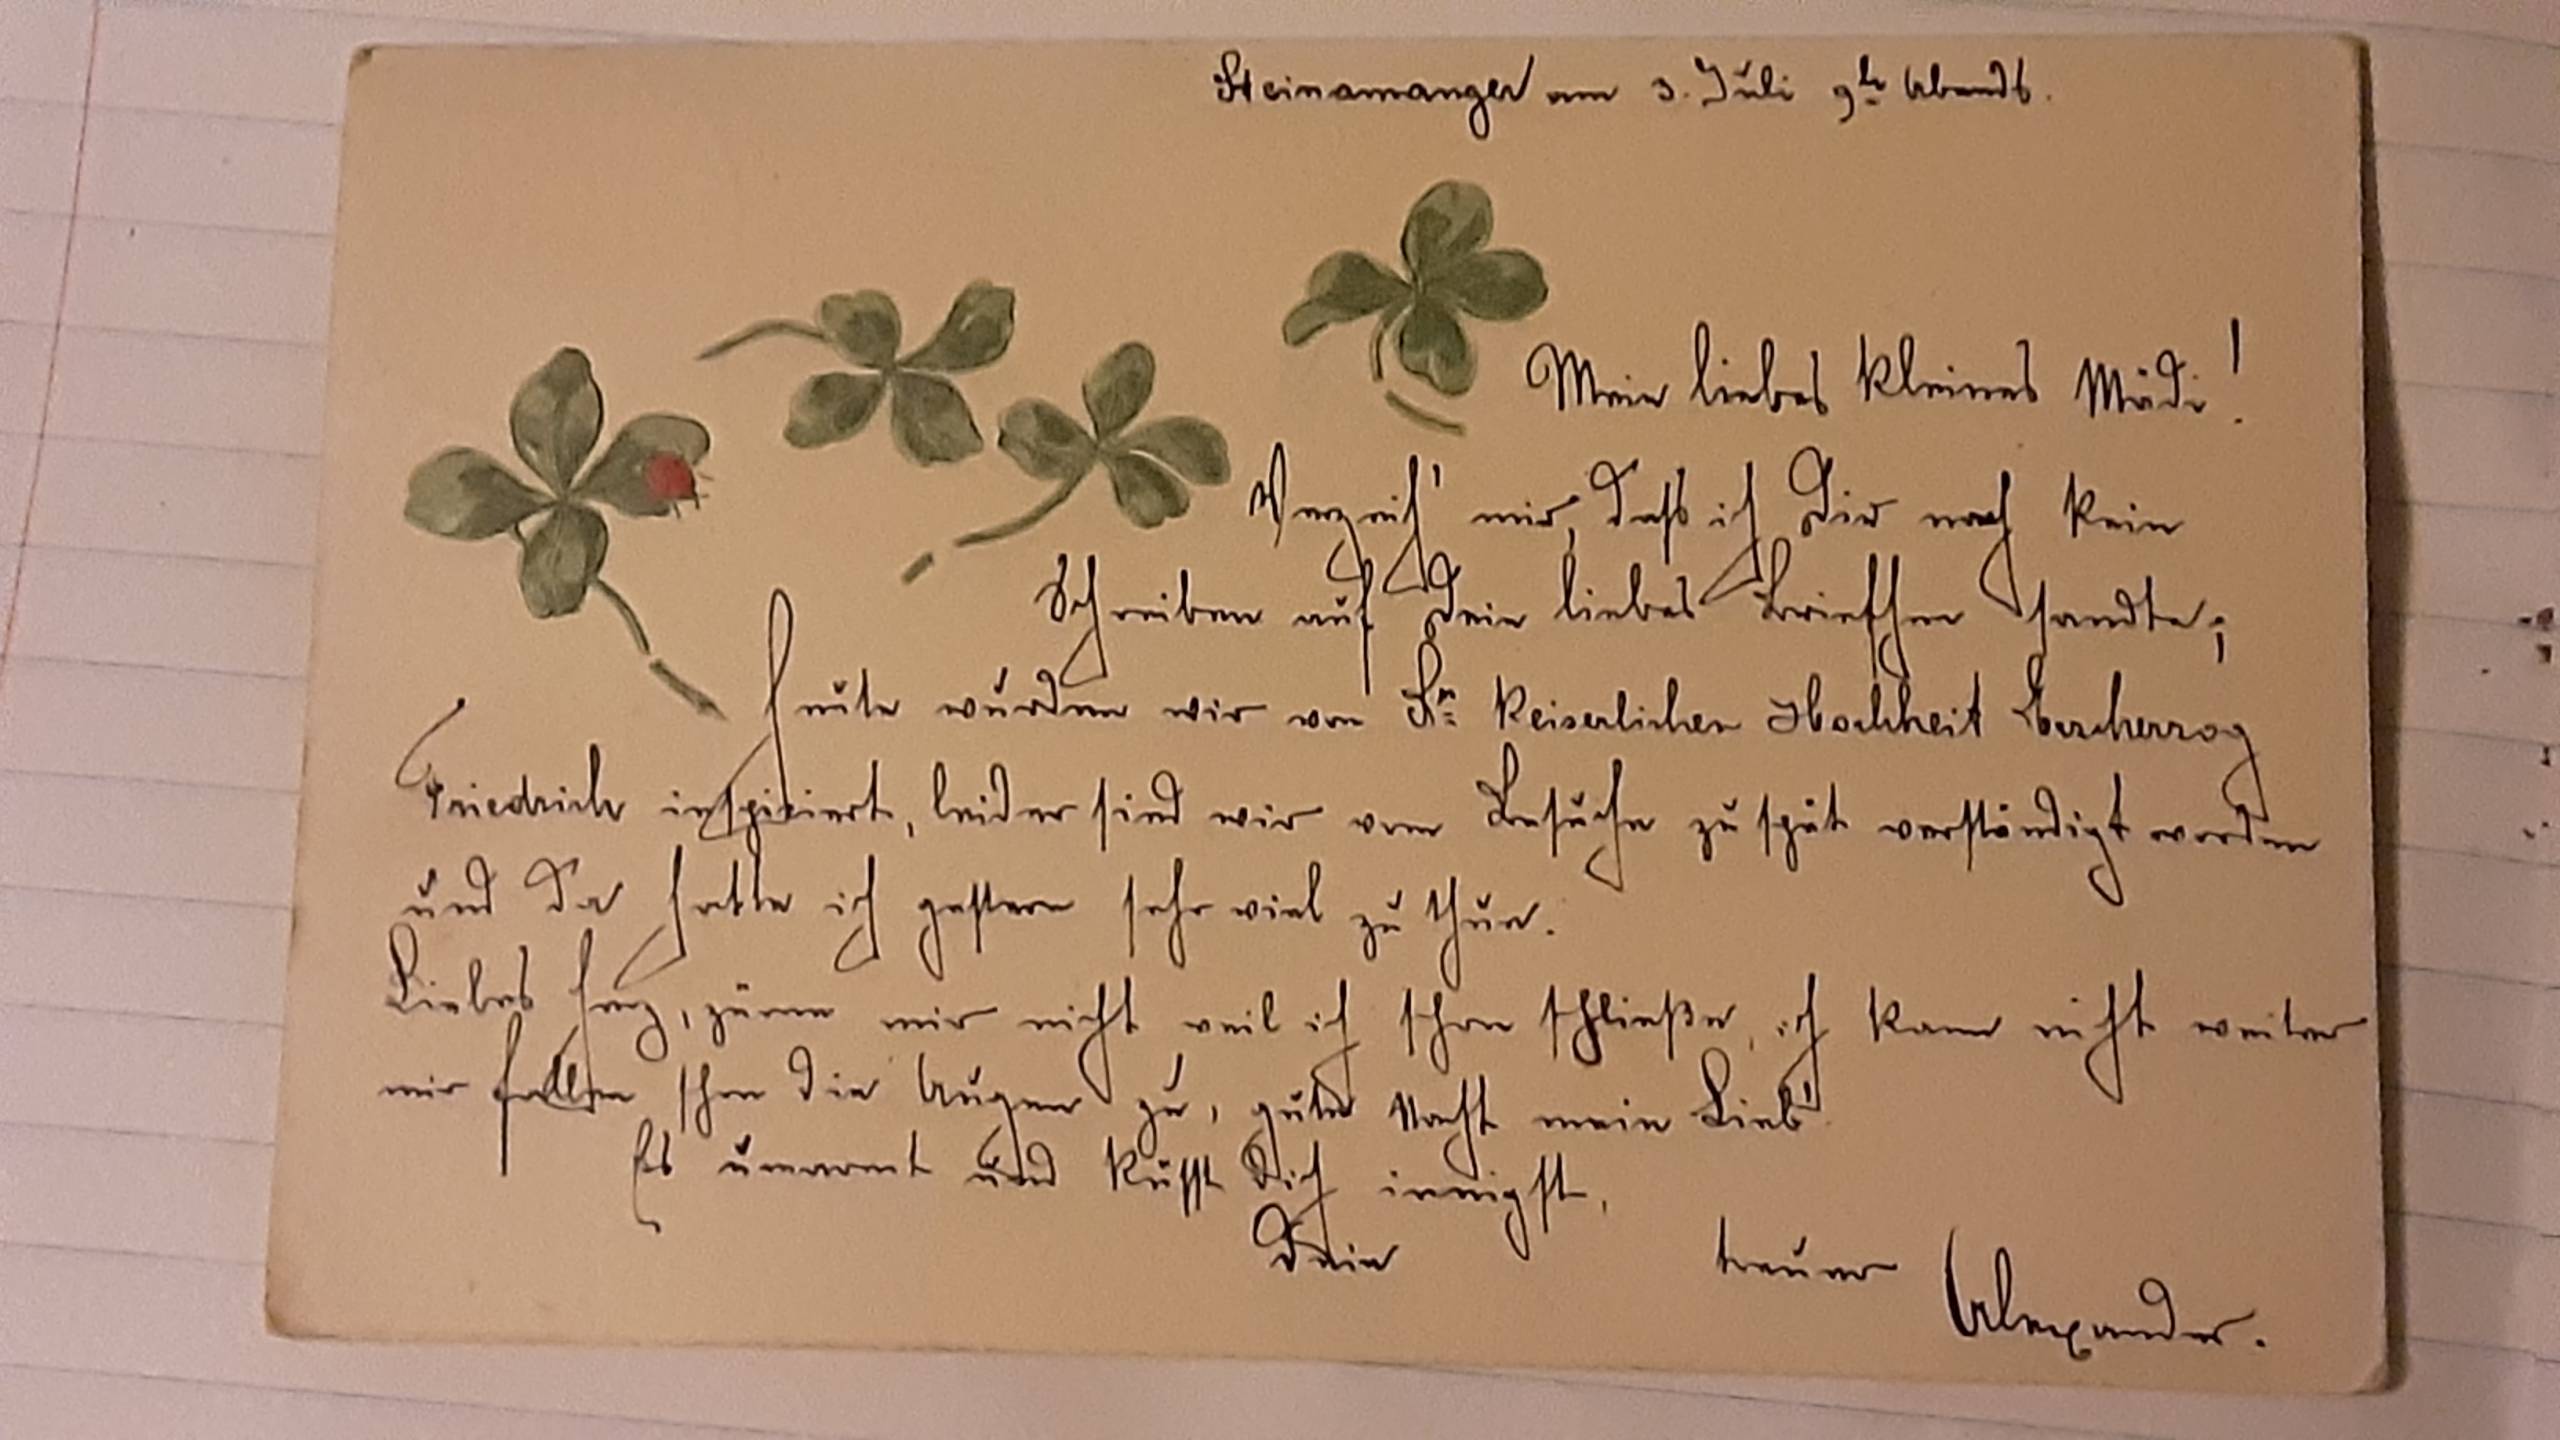 Steinamanger am 3. Juli 9h Abends.
Mein liebes kleines Mädi!
Verzeih' mir, daß ich Dir noch kein
Schreiben auf Dein liebes Briefchen sandte;
heute wurden wir von Sr. Keiserlichen Hochheit Ercherzog
Friedrich inspiciert, leider sind wir vom Besuche zu spät verständigt worden
und da hatte ich gestern sehr viel zu thun.
Liebes Herz, zürne mir nicht weil ich schon schließe, ich kann nicht weiter
mir fallen schon die Augen zu, gute Nacht mein Lieb!
Es umarmt und küsst Dich innigst,
Dein treuer
Alexander.